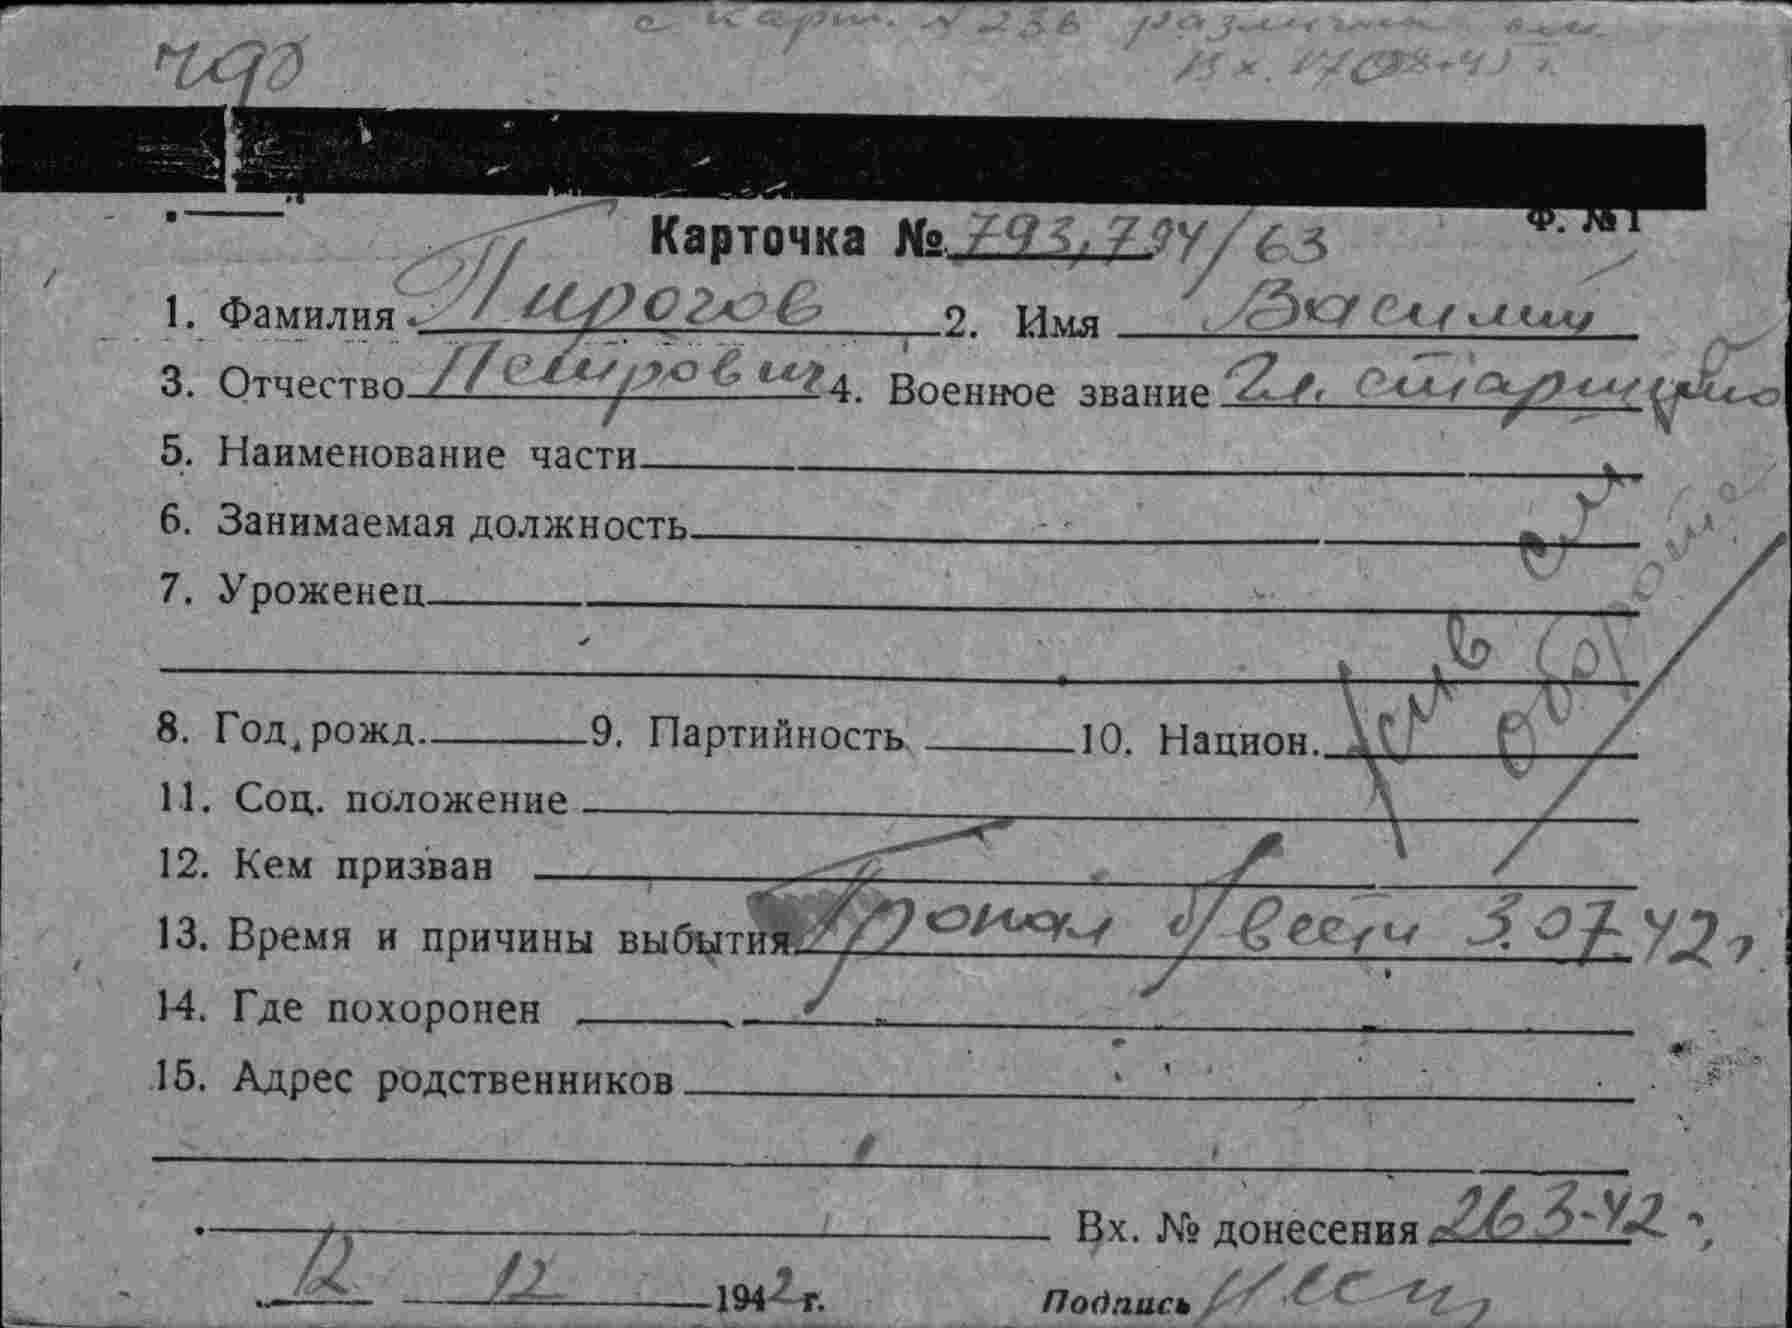 с карт. № 236 различия
Вх. 
чдо
Ф. №1
Карточка № 793,794/63
1. Фамилия Пирогов 2. Имя Василий
3. Отчество Петрович 4. Военное звание Гл. старшина
5. Наименование части
6. Занимаемая должность
7. Уроженец
8. Год рожд. 9. Партийность 10. Национ.
11. Соц. положение
12. Кем призван
13. Время и причины выбытия Пропал б/вести 3.07.42 г.
14. Где похоронен
15. Адрес родственников
Вх. № донесения 263-42 г.
12 12 1942 г. Подпись
на обороте